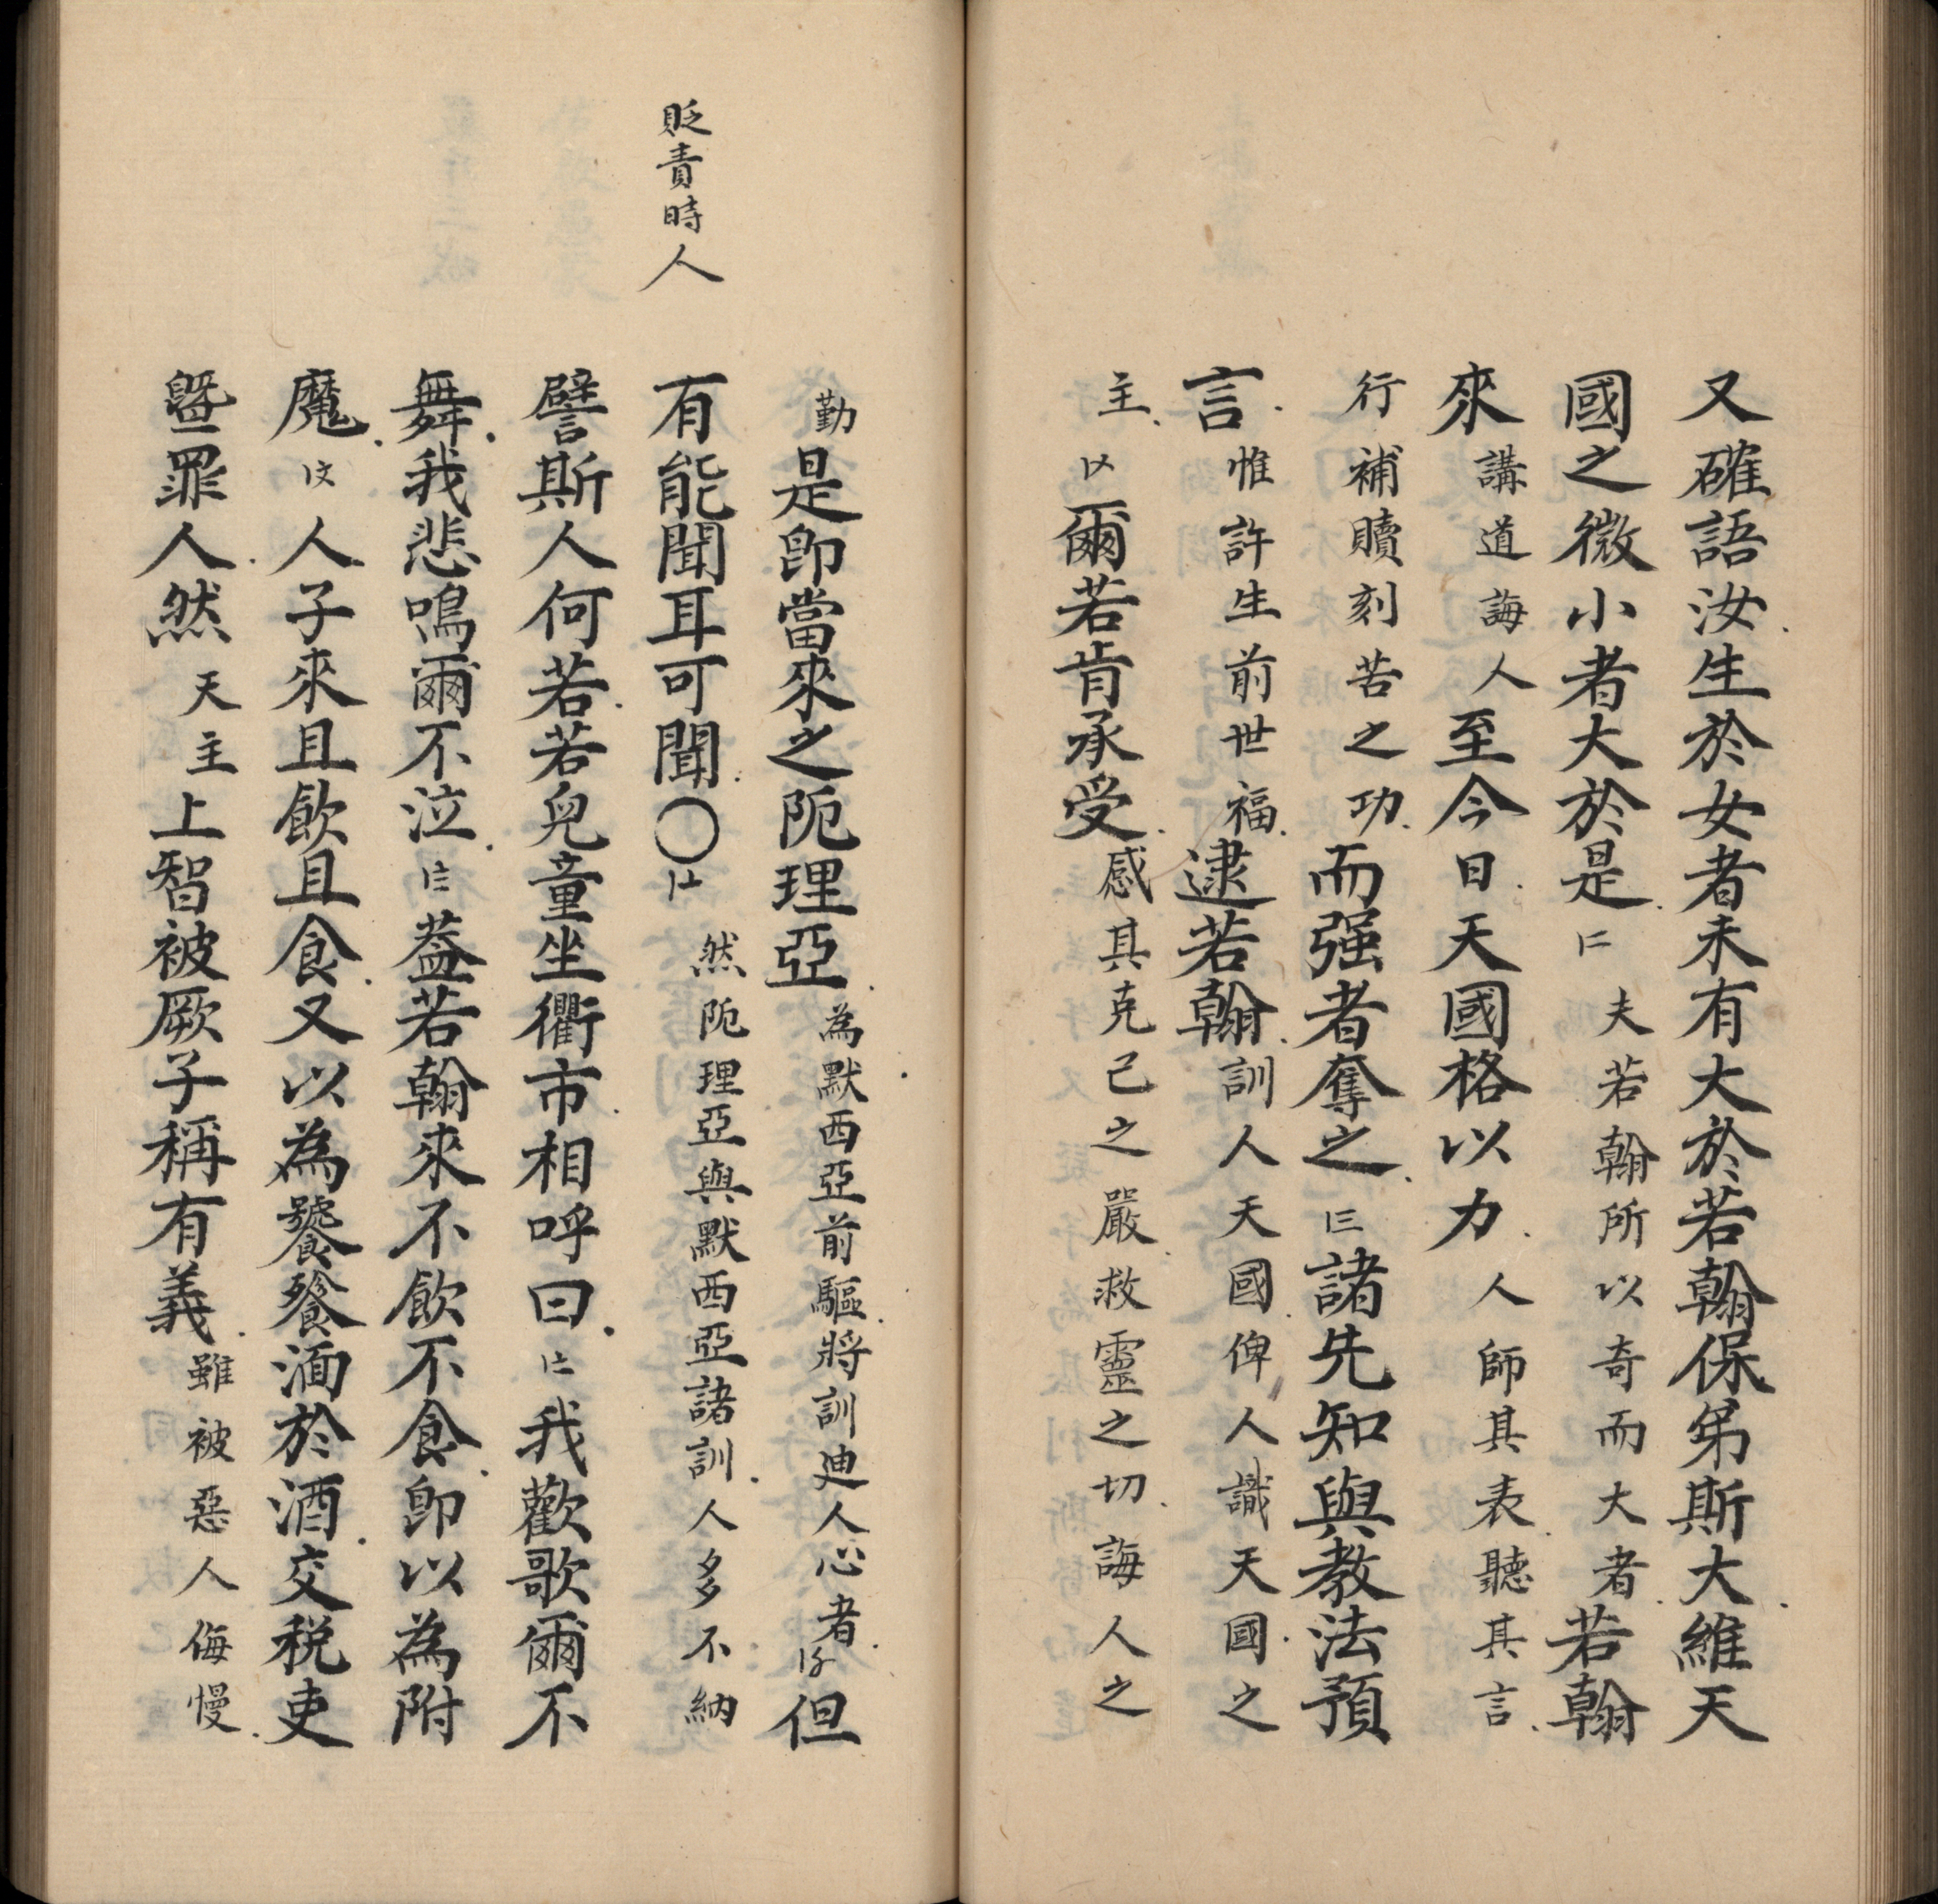 又確語汝生於女者未有大於若翰保弟斯大維天
國之微小者大於是夫若翰所以奇而大者若翰
來講道誨人至今日天國格以力人師其表聽其言
行補贖刻苦之功而强者奪之諸先知與教法預
言惟許生前世福逮若翰訓人天國俾人識天國之
主爾若肯承受感其克己之嚴救靈之切誨人之
勤是即當來之阨理亞為默西亞前驅將訓迪人心者但
貶責時人
有能聞耳可聞〇然阨理亞與默西亞諸訓人多不納
譬斯人何若若兒童坐衢市相呼曰我歡歌爾不
舞我悲鳴爾不泣葢若翰來不飲不食即以為附
魔人子來且飲且食又以為饕餮湎於酒交税吏
曁罪人然天主上智被厥子稱有義雖被惡人侮慢